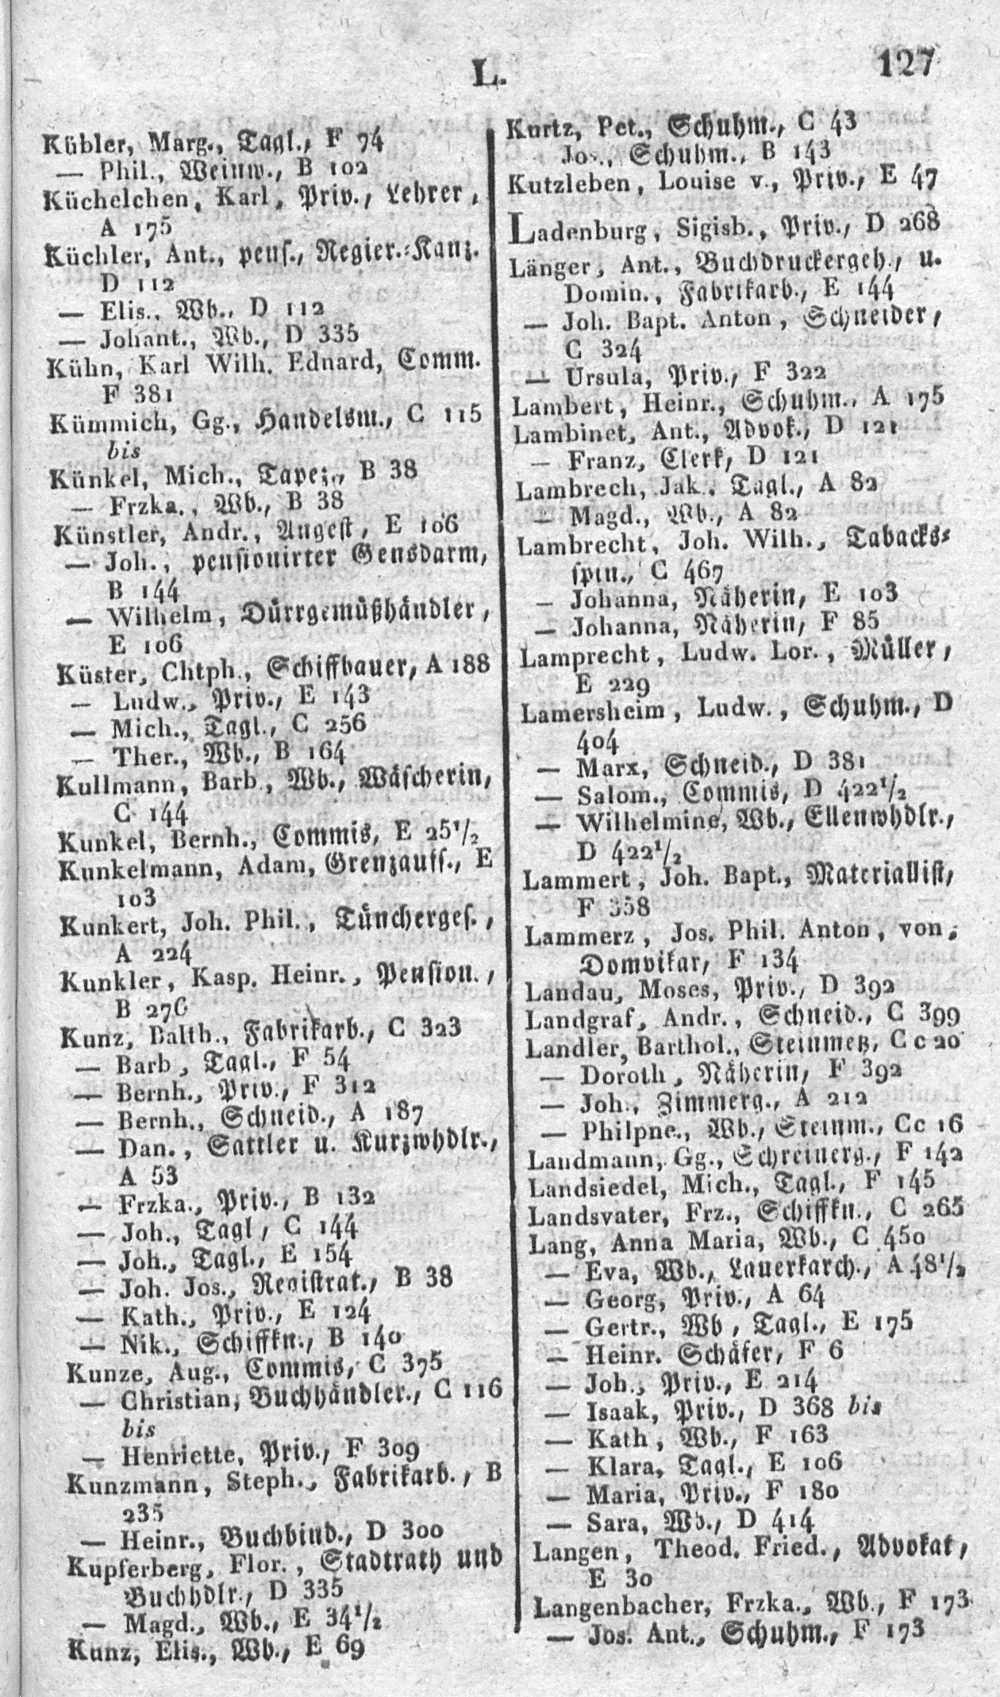 L.
127
Kübler, Marg., Tagl., F 74
— Phil., Weinw., B 102
Küchelchen, Karl, Priv., Lehrer,
A 175
Küchler, Ant., pens., Regier.-Kanz.
D 112
— Elis., Wb., D 112
— Johant., Wb., D 335
Kühn, Karl Wilh. Ednard, Comm.
F 381
Kümmich, Gg., Handelsm., C 115
bis
Künkel, Mich., Tapez., B 38
— Frzka., Wb., B 38
Künstler, Andr., Angest, E 106
— Joh., pensionirter Gensdarm,
B 144
— Wilhelm, Dürrgemüßhändler,
E 106
Küster, Chtph., Schiffbauer, A 188
— Ludw., Priv., E 143
— Mich., Tagl., C 256
— Ther., Wb., B 164
Kullmann, Barb., Wb., Wäscherin,
C 144
Kunkel, Bernh., Commis, E 25 1/2
Kunkelmann, Adam, Grenzaufs., E
103
Kunkert, Joh. Phil., Tüncherges.,
A 224
Kunkler, Kasp. Heinr., Pension.,
B 276
Kunz, Balth., Fabrikarb., C 323
— Barb, Tagl., F 54
— Bernh., Priv., F 312
— Bernh., Schneid., A 187
— Dan., Sattler u. Kurzwhdlr.,
A 53
— Frzka., Priv., B 132
— Joh., Tagl, C 144
— Joh., Tagl., E 154
— Joh. Jos., Registrat., B 38
— Kath., Priv., E 124
— Nik., Schiffkn., B 140
Kunze, Aug., Commis, C 375
— Christian, Buchhändler., C 116
bis
— Henriette, Priv., F 309
Kunzmann, Steph., Fabrikarb., B
235
— Heinr., Buchbind., D 300
Kupferberg, Flor., Stadtrath und
Buchhdlr., D 335
— Magd., Wb., E 34 1/2
Kunz, Elis., Wb., E 69
Kurtz, Pet., Schuhm., C 43
Jos., Schuhm., B 143
Kutzleben, Louise v., Priv., E 47
Ladenburg, Sigisb., Priv., D 268
Länger, Ant., Buchdruckergeh., u.
Domin., Fabrikarb., E 144
— Joh. Bapt. Anton, Schneider,
C 324
— Ursula, Priv., F 322
Lambert, Heinr., Schuhm., A 175
Lambinet, Ant., Advok., D 121
— Franz, Clerk, D 121
Lambrech, Jak., Tagl., A 82
— Magd., Wb., A 82
Lambrecht, Joh. Wilh., Tabacks-
spin., C 467
— Johanna, Näherin, E 103
— Johanna, Näherin, F 85
Lamprecht, Ludw. Lor., Müller,
E 229
Lamersheim, Ludw., Schuhm., D
404
— Marx, Schneid., D 381
— Salom., Commis, D 422 1/2
— Wilhelmine, Wb., Ellenwhdlr.,
D 422 1/2
Lammert, Joh. Bapt., Materiallist,
F 358
Lammerz, Jos. Phil. Anton, von,
Domvikar, F 134
Landau, Moses, Priv., D 392
Landgraf, Andr., Schneid., C 399
Landler, Barthol., Steinmetz, Cc 20
— Doroth, Näherin, F 392
— Joh., Zimmerg., A 212
— Philpne., Wb., Steinm., Cc 16
Landmann, Gg., Schreinerg., F 142
Landsiedel, Mich., Tagl., F 145
Landsvater, Frz., Schiffkn., C 265
Lang, Anna Maria, Wb., C 450
— Eva, Wb., Lauerkarch., A 48 1/2
— Georg, Priv., A 64
— Gertr., Wb, Tagl., E 175
— Heinr. Schäfer, F 6
— Joh., Priv., E 214
— Isaak, Priv., D 368 bis
— Kath, Wb., F 163
— Klara, Tagl., E 106
— Maria, Priv., F 180
— Sara, Wb., D 414
Langen, Theod. Fried., Advokat,
E 30
Langenbacher, Frzka., Wb., F 173
— Jos. Ant., Schuhm., F 173